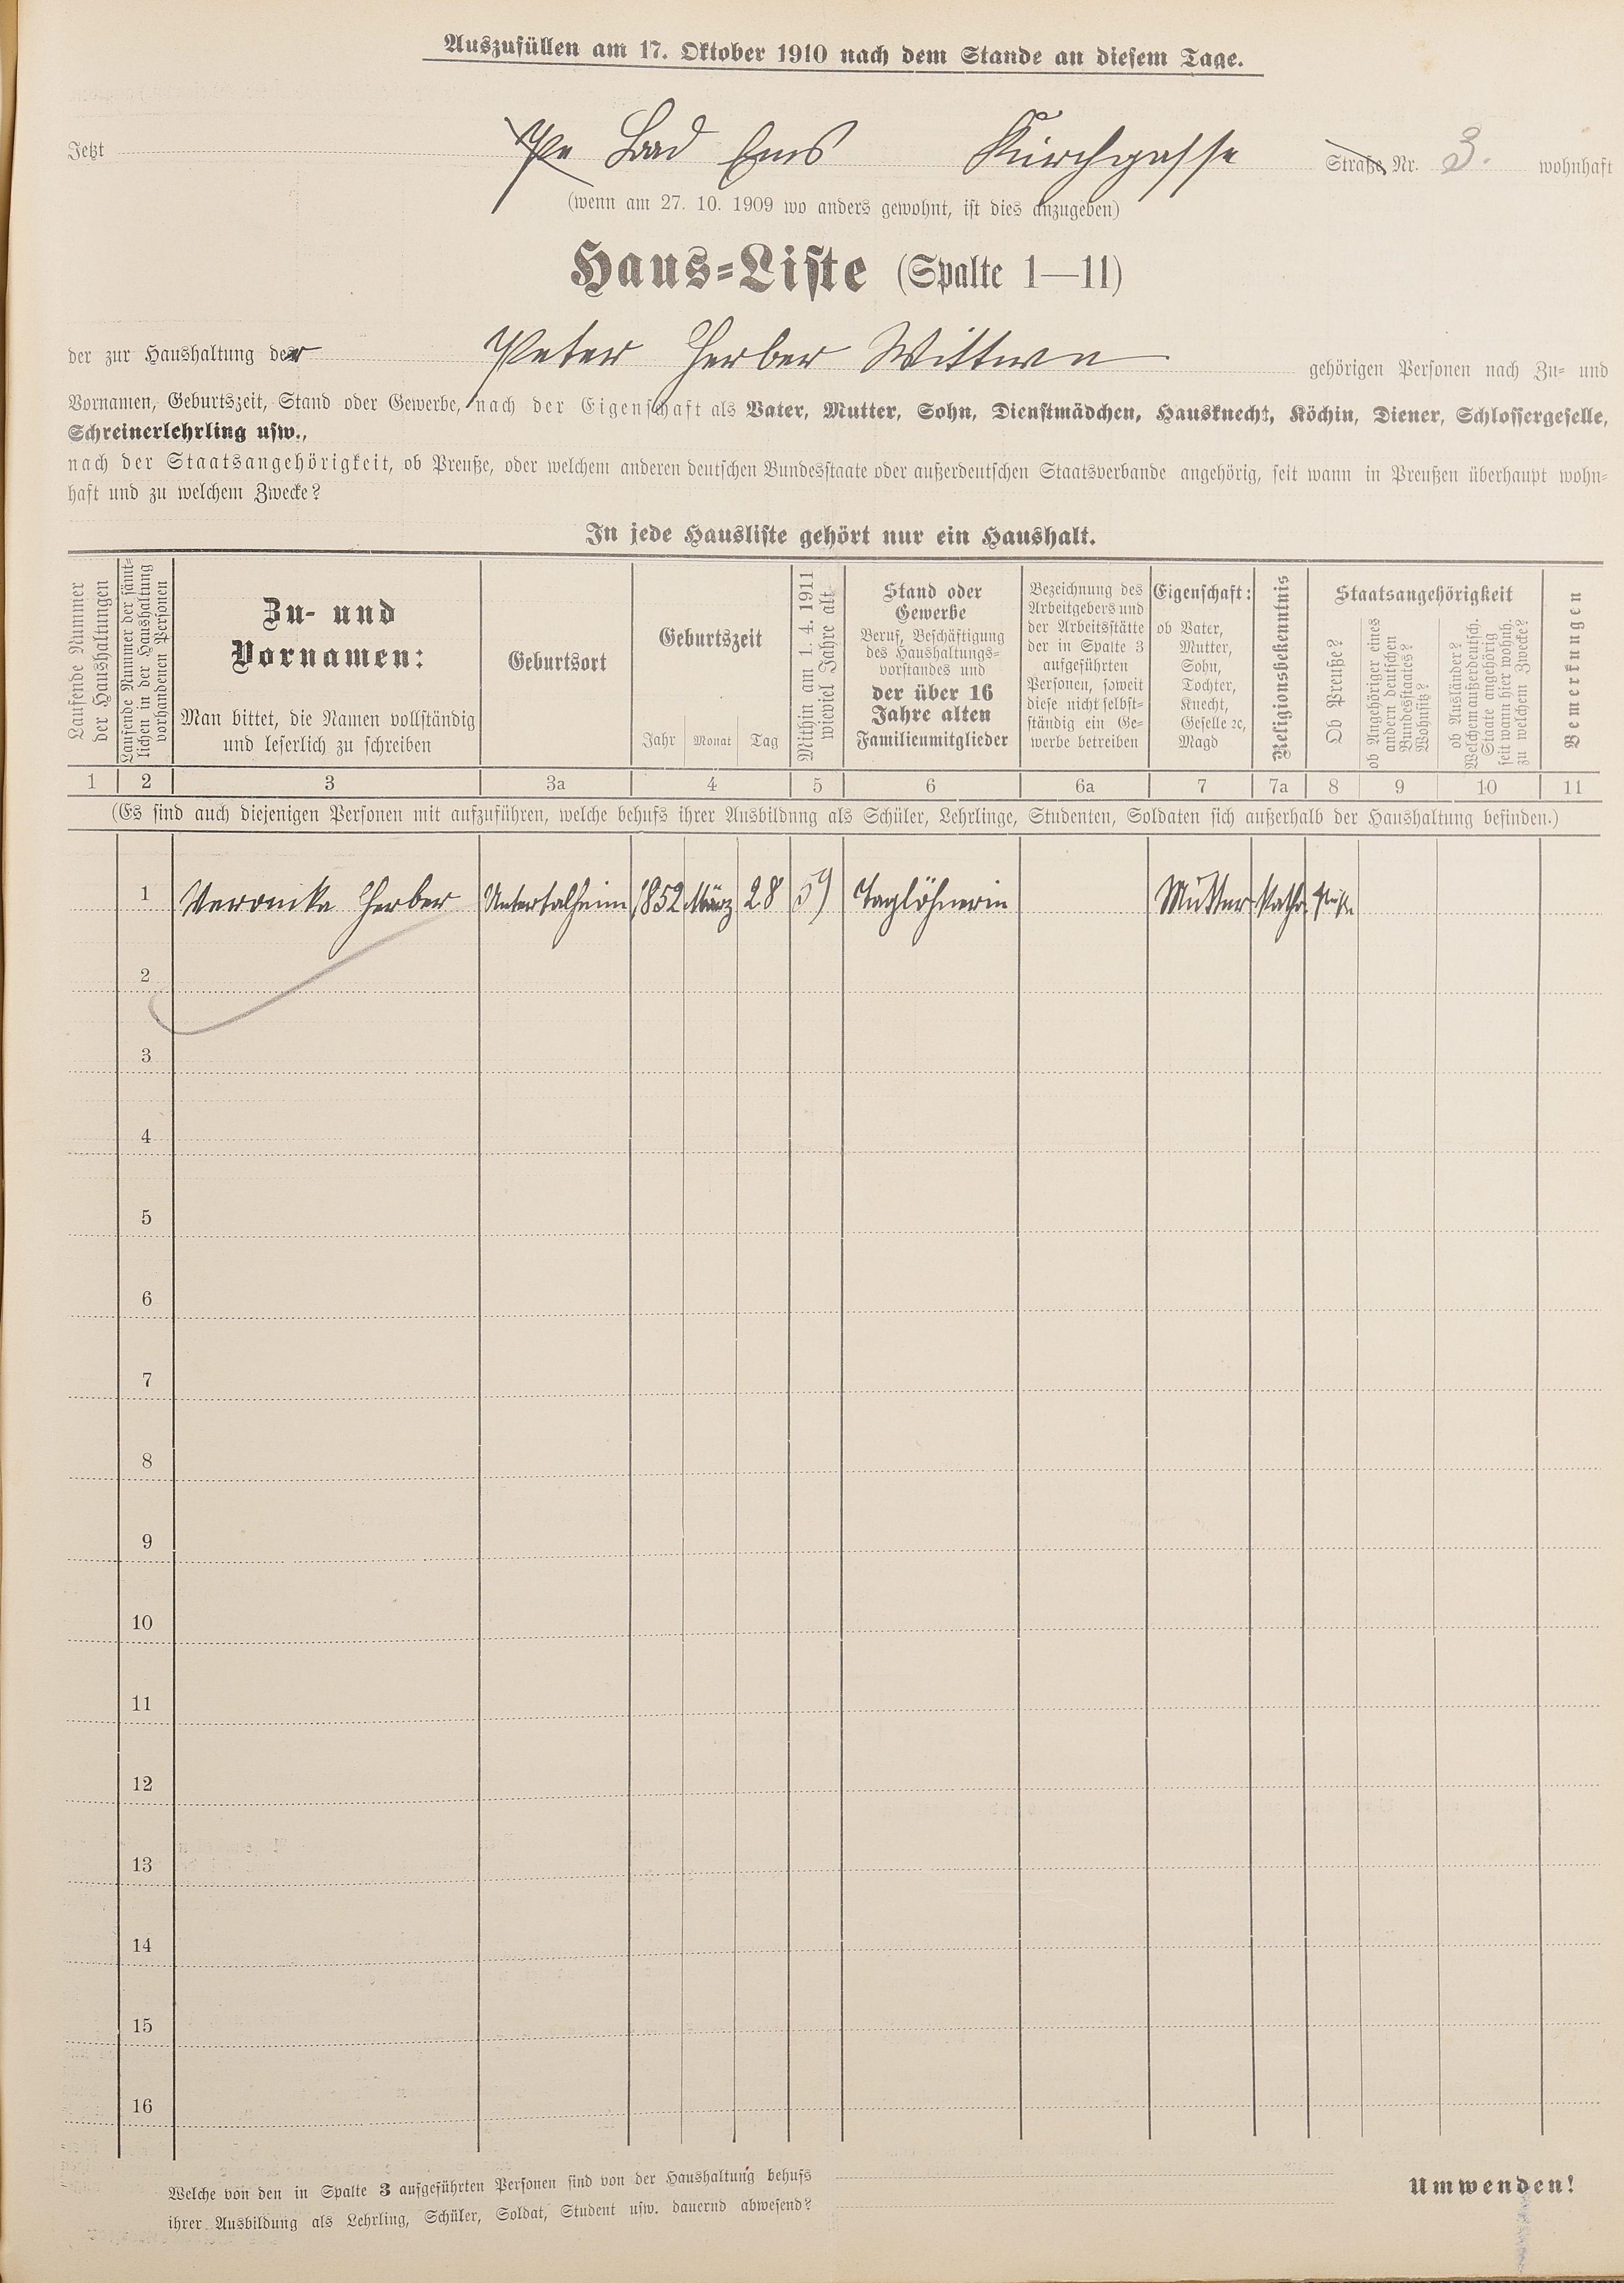 Auszufüllen am 17. Oktober 1910 nach dem Stande an diesem Tage.
Jetzt Pe Bad Ems Kirchgasse Straße Nr. 3. wohnhaft
(wenn am 27. 10. 1909 wo anders gewohnt, ist dies anzugeben)
Haus-Liste (Spalte 1—11)
der zur Haushaltung der Peter Herber Wittwe gehörigen Personen nach Zu- und
Vornamen, Geburtszeit, Stand oder Gewerbe, nach der Eigenschaft als Vater, Mutter, Sohn, Dienstmädchen, Hausknecht, Köchin, Diener, Schlossergeselle,
Schreinerlehrling usw.,
nach der Staatsangehörigkeit, ob Preuße, oder welchem anderen deutschen Bundesstaate oder außerdeutschen Staatsverbande angehörig, seit wann in Preußen überhaupt wohn-
haft und zu welchem Zwecke?
In jede Hausliste gehört nur ein Haushalt.
Laufende Nummer
der Haushaltungen
Laufende Nummer der sämt-
lichen in der Haushaltung
vorhandenen Personen
Zu- und
Vornamen:
Man bittet, die Namen vollständig
und leserlich zu schreiben
Geburtsort
Geburtszeit
Jahr Monat Tag
Mithin am 1. 4. 1911
wieviel Jahre alt
Stand oder
Gewerbe
Beruf, Beschäftigung
des Haushaltungs-
vorstandes und
der über 16
Jahre alten
Familienmitglieder
Bezeichnung des
Arbeitgebers und
der Arbeitsstätte
der in Spalte 3
aufgeführten
Personen, soweit
diese nicht selbst-
ständig ein Ge-
werbe betreiben
Eigenschaft:
ob Vater,
Mutter,
Sohn,
Tochter,
Knecht,
Geselle ꝛc,
Magd
Religionsbekenntnis
Staatsangehörigkeit
Ob Preuße?
ob Angehöriger eines
andern deutschen
Bundesstaates?
Wohnsitz?
ob Ausländer?
Welchem außerdeutsch.
Staate angehörig
seit wann hier wohnh.
zu welchem Zwecke?
Bemerkungen
1 2 3 3a 4 5 6 6a 7 7a 8 9 10 11
(Es sind auch diejenigen Personen mit aufzuführen, welche behufs ihrer Ausbildung als Schüler, Lehrlinge, Studenten, Soldaten sich außerhalb der Haushaltung befinden.)
1 Veronika Herber 1852 März 28 59 Taglöhnerin Mutter Kath.
2
3
4
5
6
7
8
9
10
11
12
13
14
15
16
Welche von den in Spalte 3 aufgeführten Personen sind von der Haushaltung behufs
ihrer Ausbildung als Lehrling, Schüler, Soldat, Student usw. dauernd abwesend?
Umwenden!